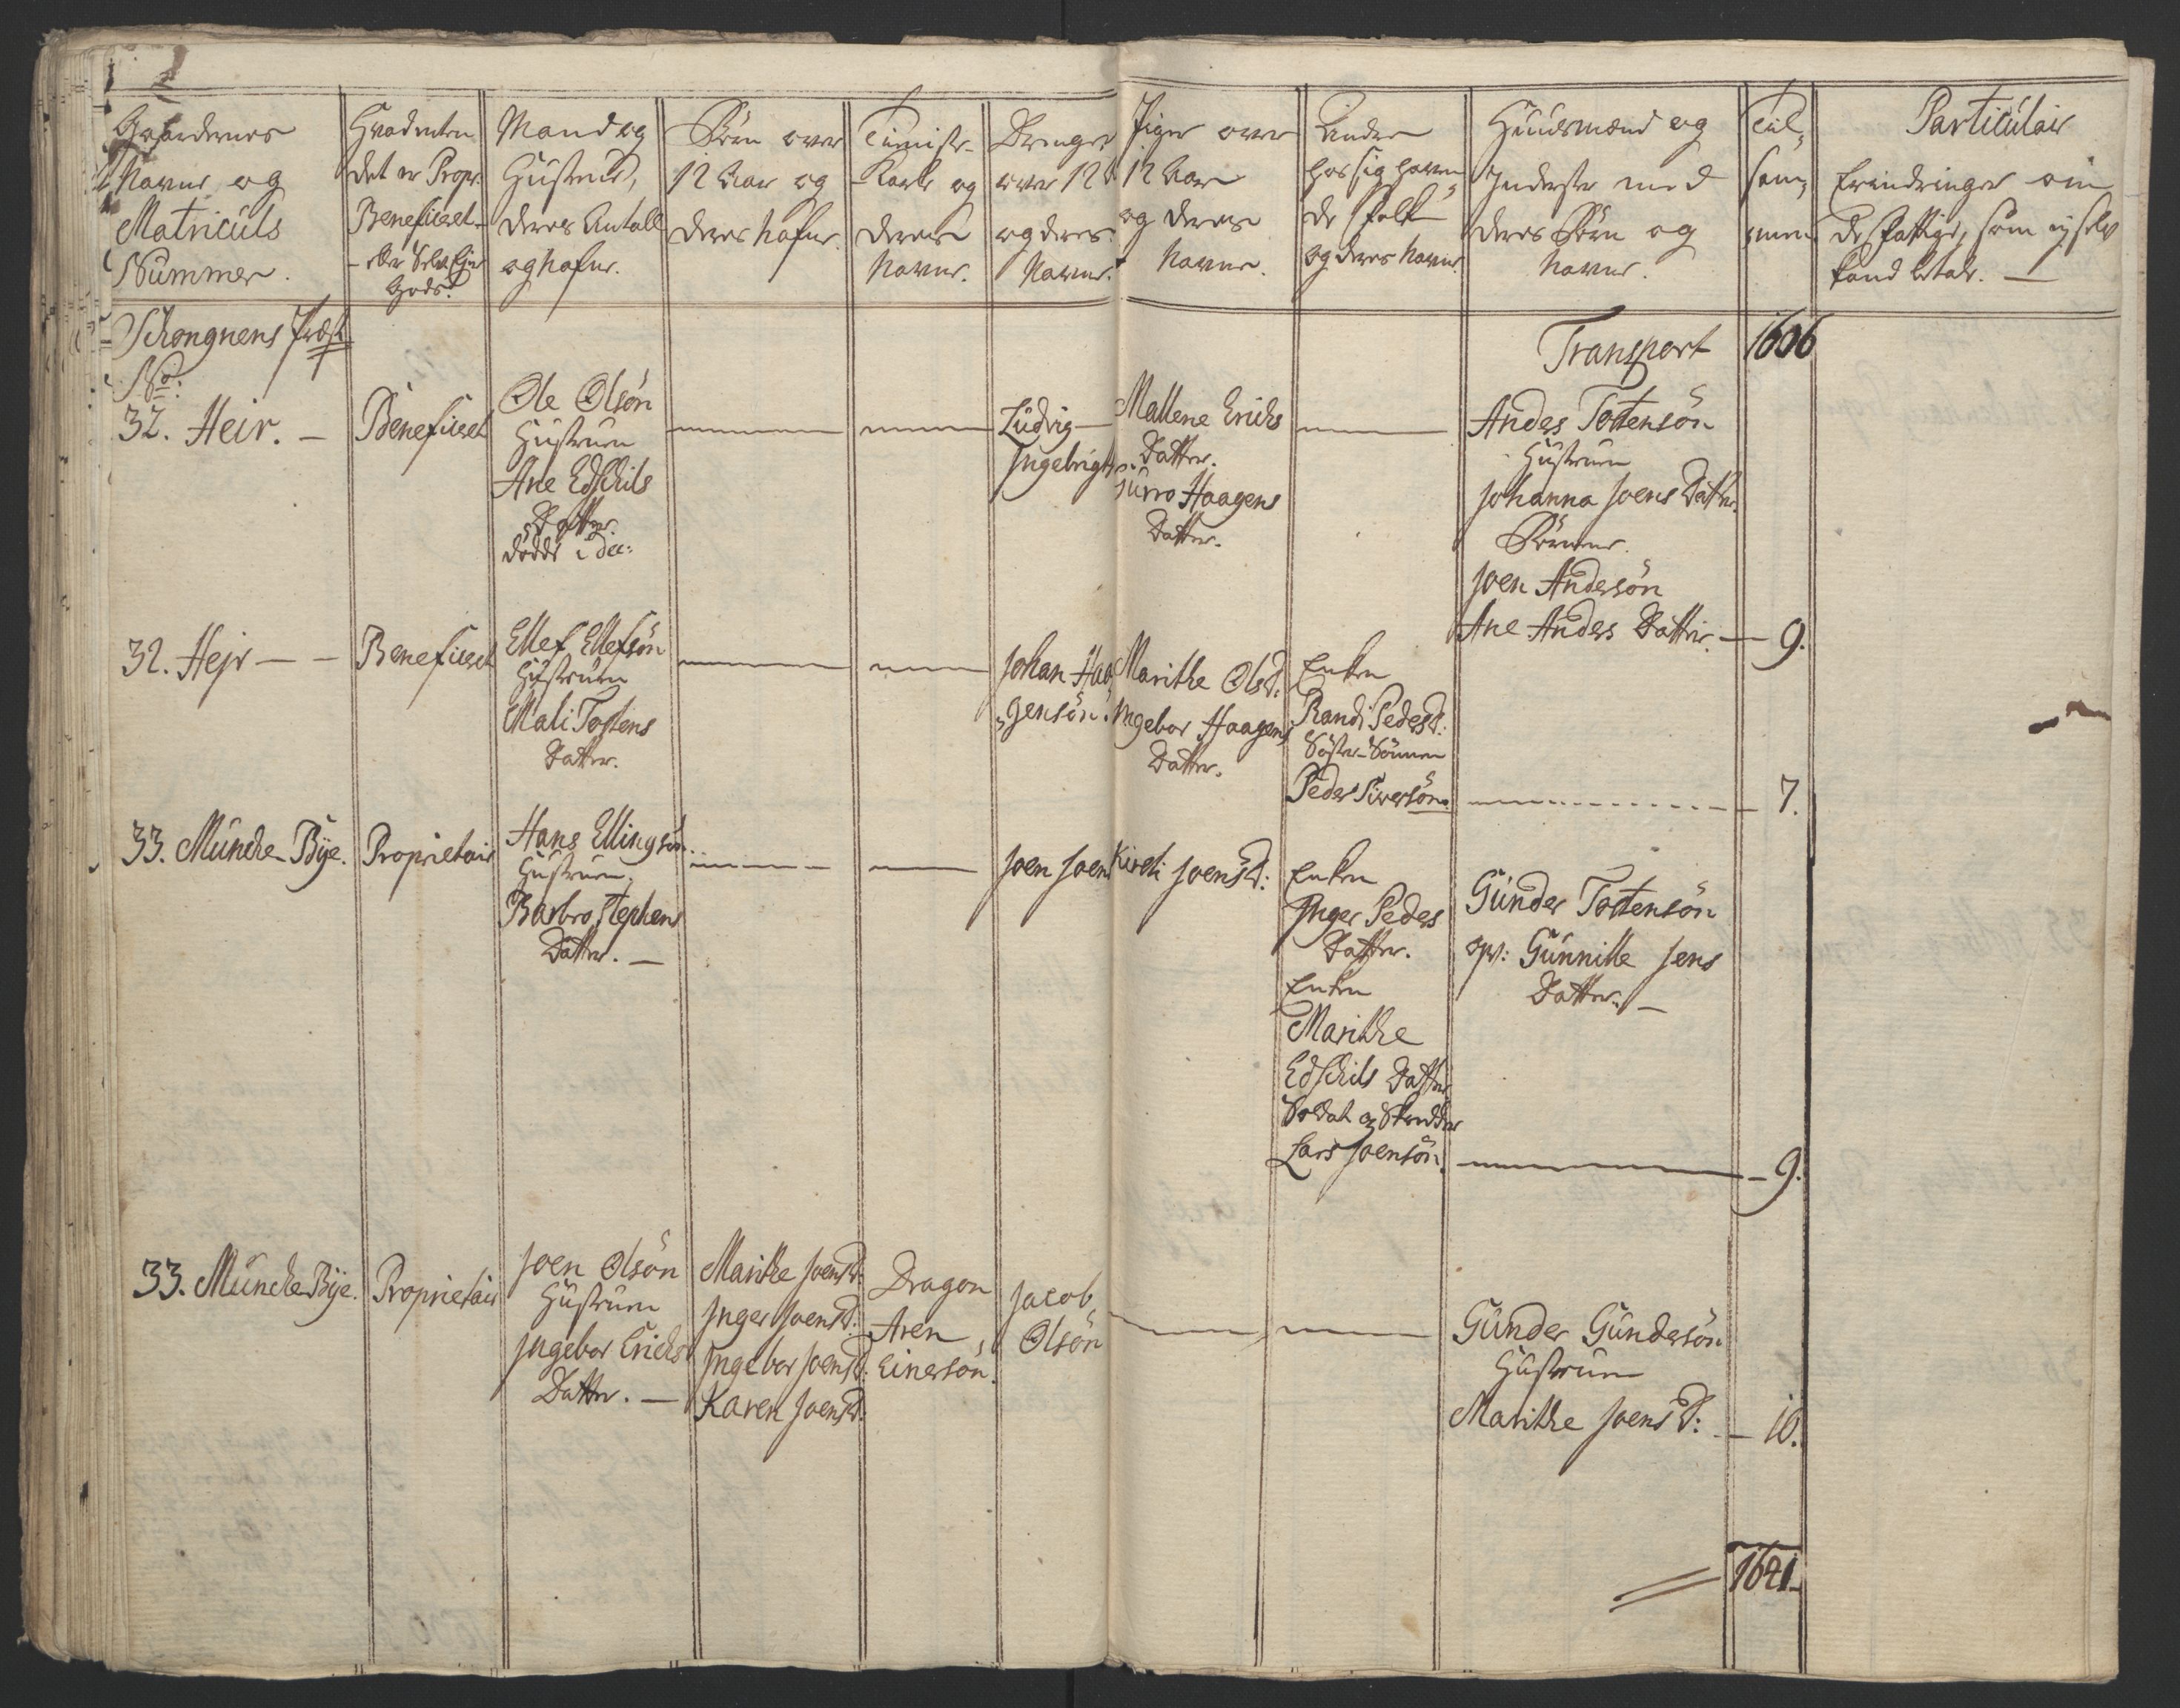 Gaardernes
Navne og
Matriculs
Nummer.
Hvad enten
det er Propr:
Beneficeret
eller Selv Ejer
Gods.
Mand og
Hustrue,
deres Antall
og Nafne.
Børn over
12 Aar og
deres Nafne.
Tieniste-
Karle og
deres
Navne.
Drenge
over 12
og deres
Navne.
Piger over
12 Aar
og deres
Navne.
Andre
hos sig haven-
de folk
og deres Navne.
Huusmænd og
Inderster med
deres Børn og
Navne.
Til-
sam-
men
Particulair
Erindringer om
de fattige, som ej selv
kand betale. —
Schongnens Præst:
Transport 1606
No:
32. Heir. —
Beneficeret
Ole Olsön
Hustruen
Ane Edschils
Datter.
döde i Dec:
Ludvig
Ingebrigts
Mallene Erichs
Datter.
Guro Haagens
Datter.
Andes Tostensön
Hustruen
Johanna Joens Datter.
Börnene.
Joen Andersön
Ane Anders Datter — 9.
32. Hejr — —
Beneficeret
Ellef Ellefsön
Hustruen
Mali Tostens
Datter.
Johan Haa-
gensön.
Marithe Olsd:
Ingebor Haagens
Datter.
Enken
Randi Pedersd:
Söster-Sönnen
Peder Siversön. — 7.
33. Müncke-Bÿe.
Proprietair
Hans Ellingsön
Hustruen.
Barbro Stephens
Datter. —
Joen Joens
Kirsti Joensd:
Enken
Inger Peders
Datter.
Enken
Marithe
Edschils Datter
Soldat og Skrædder
Lars Joensön.
Günder Tostensön
Gunnille Jens
Datter. —
— 9.
33. Müncke Bÿe.
Proprietair
Joen Olsön
Hustruen
Ingebor Erichs
Datter. —
Marithe Joensd:
Inger Joensd:
Ingebor Joensd:
Karen Joensd:
Dragon
Aren
Einersön.
Jacob
Olsön
Günder Gündersön
Hustruen
Marithe Joensd: — 10.
1641